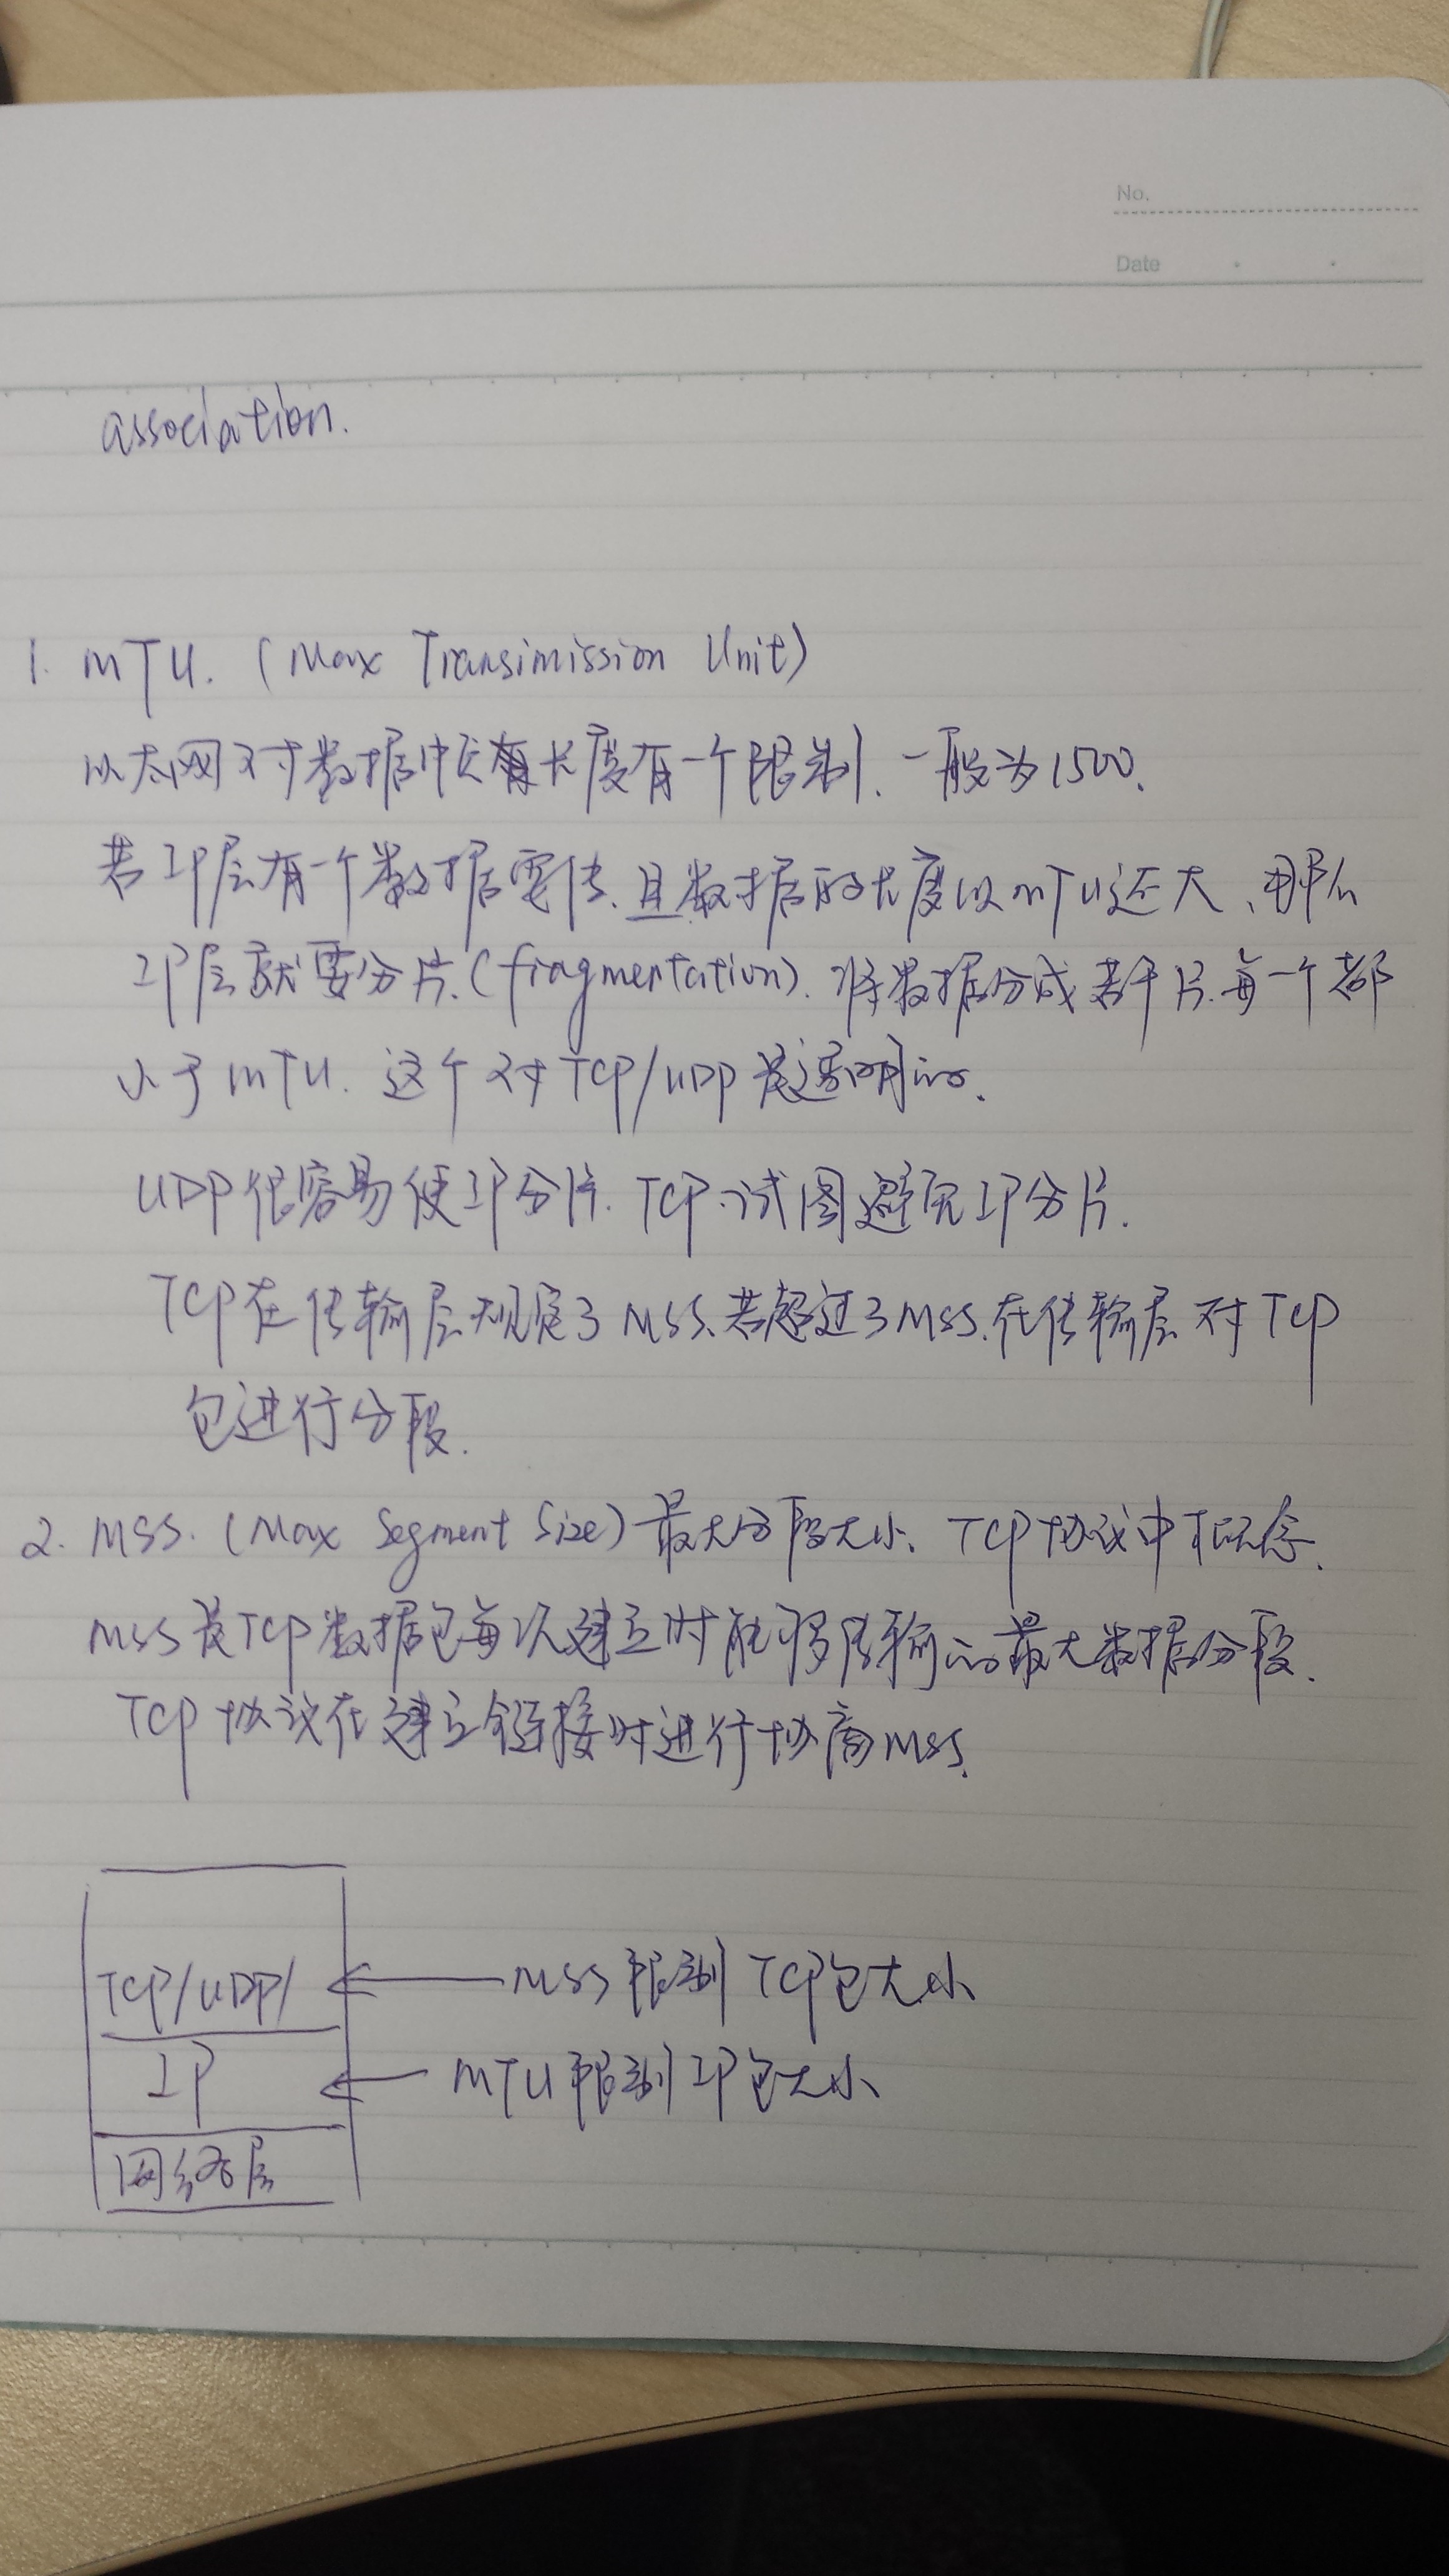 No.
Date
association.
1. MTU. (Max Transimission Unit)
以太网对数据帧长度有一个限制、一般为1500、
若IP层有一个数据要传、且数据的长度以MTU还大、那么
IP层就要分片、(fragmentation). 将数据分成若干片、每一个都
小于MTU. 这个对TCP/UDP是透明的、
UDP很容易使IP分片. TCP试图避免IP分片.
TCP在传输层规定了MSS、若超过了MSS、在传输层对TCP
包进行分段.
2. MSS. (Max Segment Size) 最大分段大小、TCP协议中概念、
MSS是TCP数据包每次建立时能够传输的最大数据分段、
TCP协议在建立链接时进行协商MSS.
TCP/UDP/ MSS限制TCP包大小
IP MTU限制IP包大小
网络层